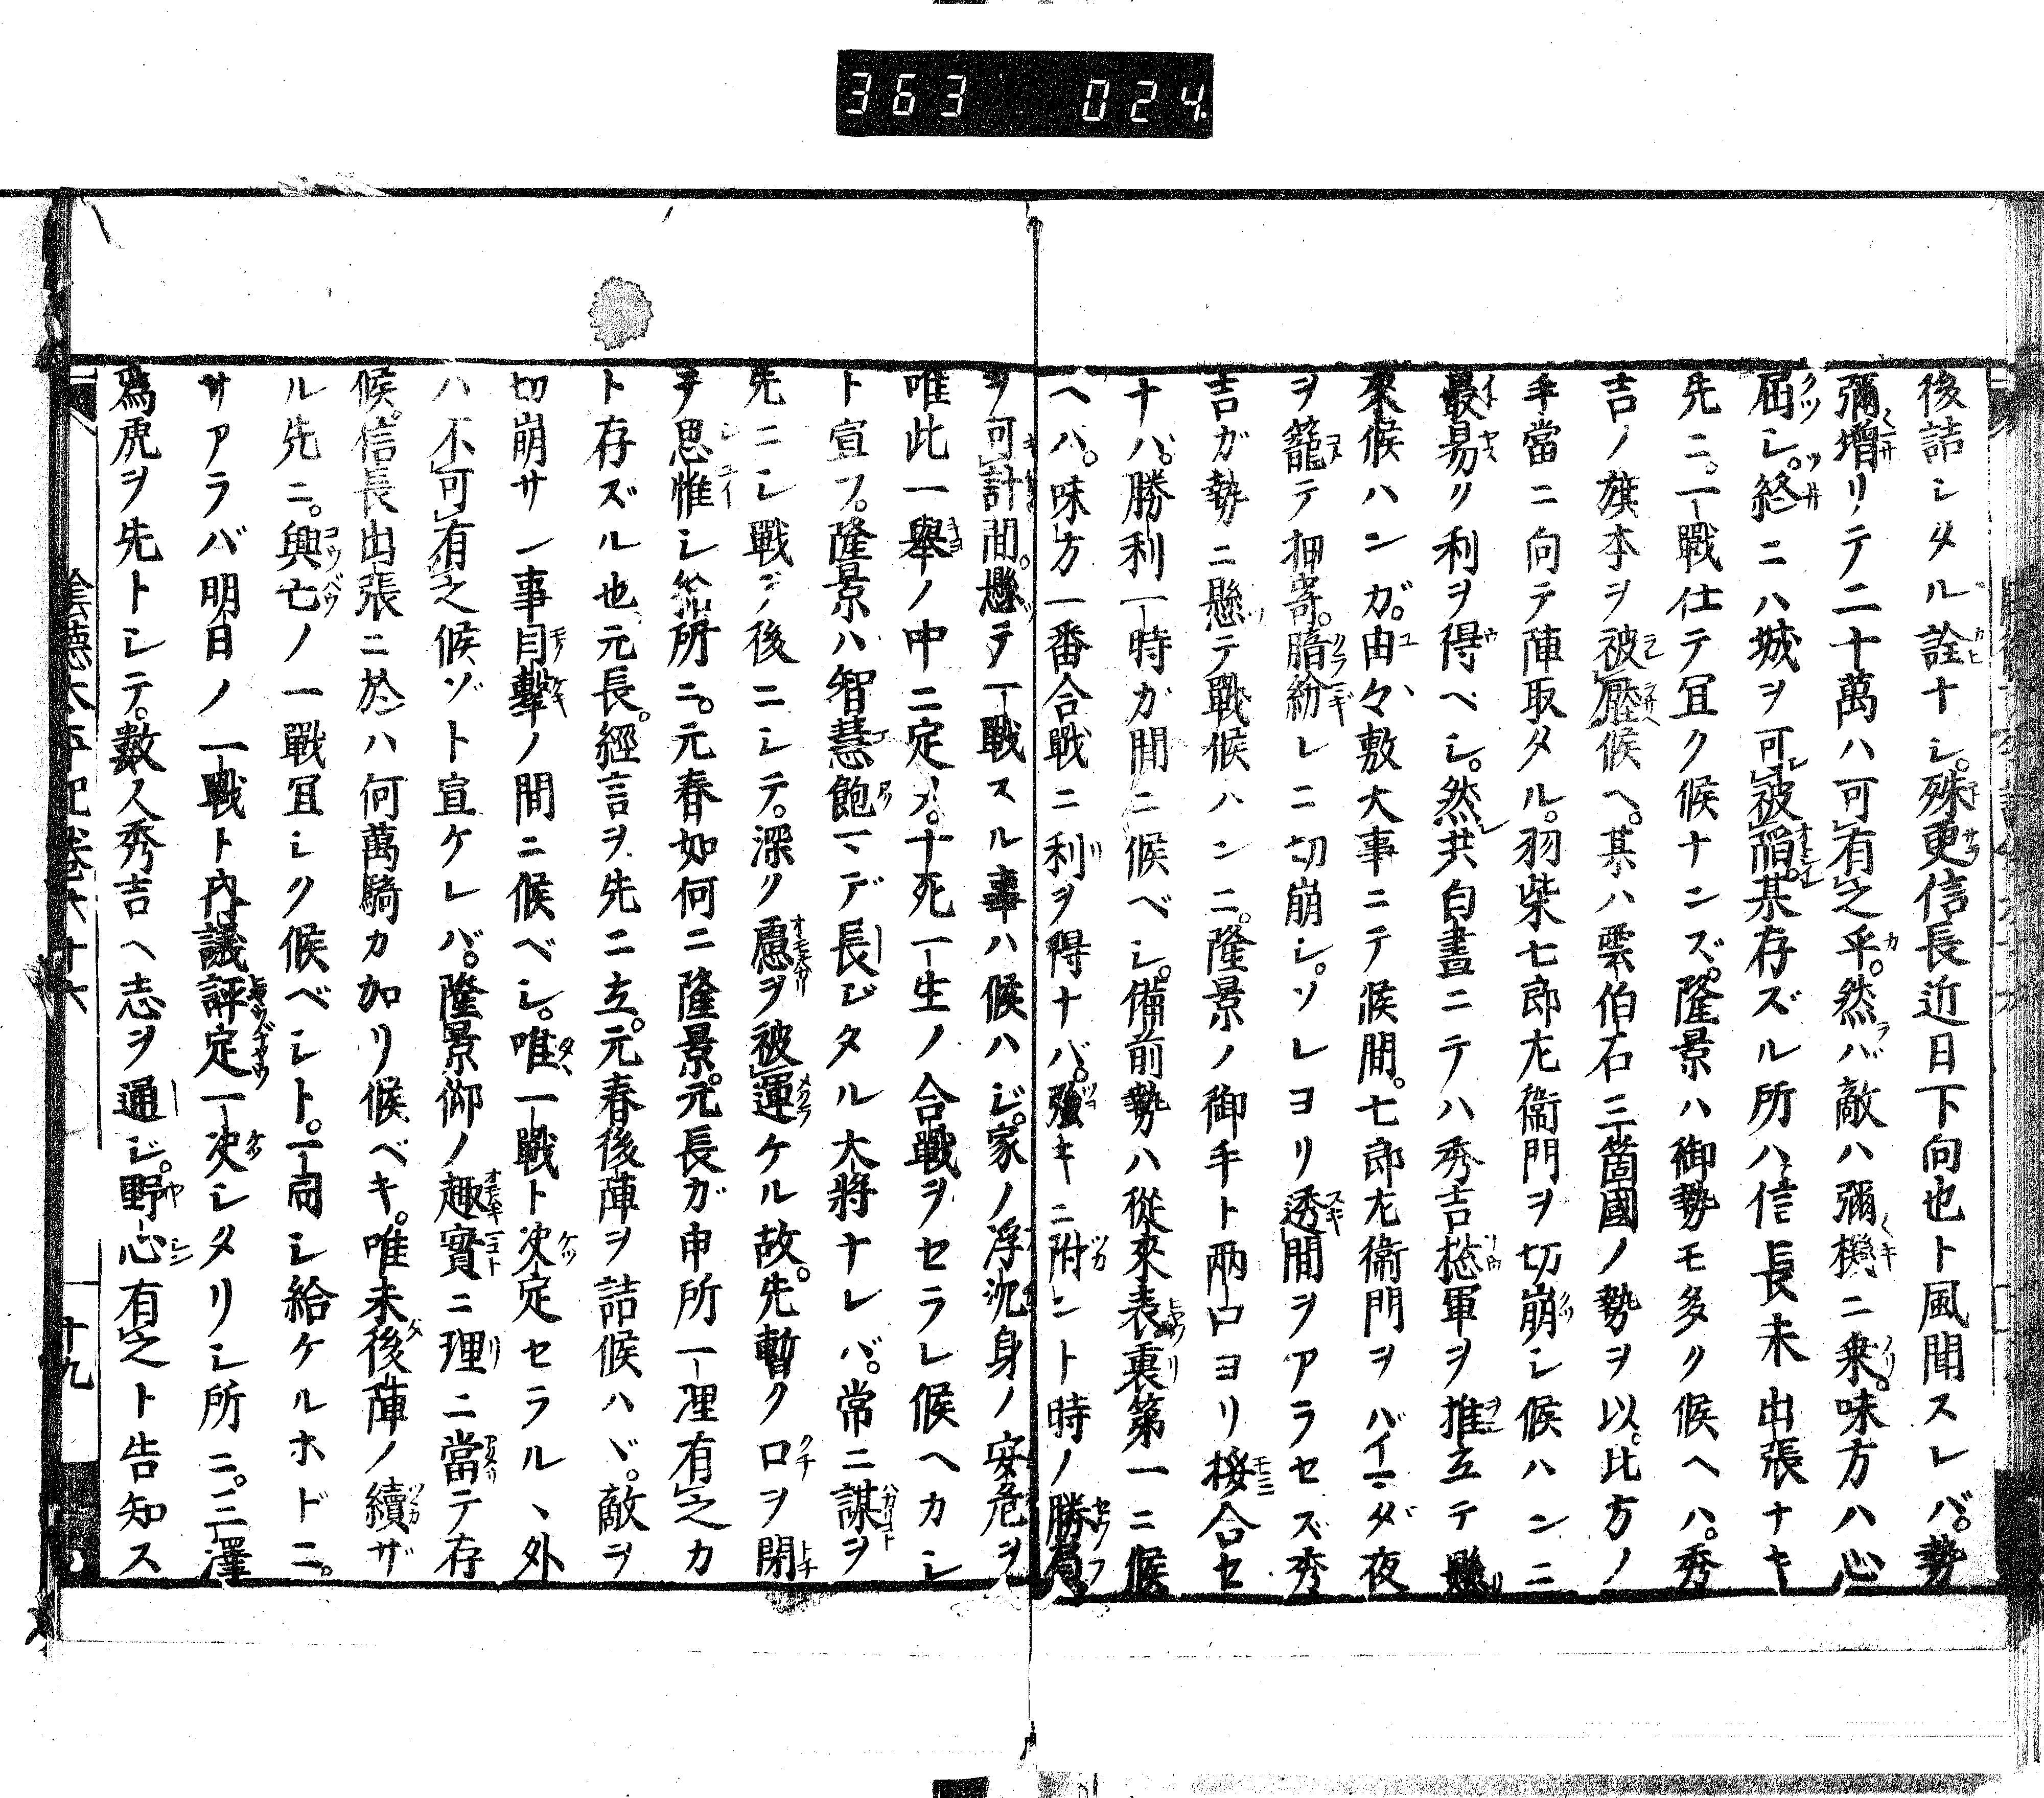 363 024
後詰シタル詮ナシ。殊更信長近日下向也ト風聞スレバ。勢
彌増リテ二十萬ハ可有之乎。然バ敵ハ彌機ニ乗。味方ハ心
屈シ。終ニハ城ヲ可被陷。某存ズル所ハ信長未出張ナキ
先ニ。一戰仕テ冝ク候ナンズ。隆景ハ御勢モ多ク候ヘハ。秀
吉ノ旗本ヲ被壓候ヘ。某ハ雲伯石三箇國ノ勢ヲ以。此方ノ
手當ニ向テ陣取タル。羽柴七郎左衞門ヲ切崩シ候ハンニ
最易ク利ヲ得ベシ。然共白晝ニテハ秀吉惣軍ヲ推立テ懸
來候ハンガ。由々敷大事ニテ候間。七郎左衞門ヲバイマダ夜
ヲ籠テ押寄。暗紛レニ切崩シ。ソレヨリ透間ヲアラセズ秀
吉ガ勢ニ懸テ戰候ハンニ。隆景ノ御手ト兩口ヨリ接合セ
ナハ。勝利一時ガ間ニ候ベシ。備前勢ハ從來表裏第一ニ候
ヘハ。味方一番合戰ニ利ヲ得ナバ。強キニ附ント時ノ勝負
ヲ可計間。懸テ一戰スル事ハ候ハジ。家ノ浮沈身ノ安危ヲ
唯此一擧ノ中ニ定メ。十死一生ノ合戰ヲセラレ候ヘカシ
ト宣フ。隆景ハ智慧飽マデ長ジタル大將ナレバ。常ニ謀ヲ
先ニシ戰ヲ後ニシテ。深ク慮ヲ被運ケル故。先暫ク口ヲ閉
テ思惟シ給所ニ。元春如何ニ隆景。元長ガ申所一理有之カ
ト存ズル也。元長。經言ヲ先ニ立。元春後陣ヲ詰候ハヾ。敵ヲ
切崩サン事目撃ノ間ニ候ベシ。唯一戰ト决定セラルヽ外
ハ不可有之候ゾト宣ケレバ。隆景仰ノ趣實ニ理ニ當テ存
候。信長出張ニ於ハ何萬騎カ加リ候ベキ。唯未後陣ノ續ザ
ル先ニ。興亡ノ一戰冝シク候ベシト。一同シ給ケルホドニ。
サアラバ明日ノ一戰ト內議評定一决シタリシ所ニ。三澤
爲虎ヲ先トシテ。數人秀吉ヘ志ヲ通ジ。野心有之ト告知ス
陰德太平記卷六十六
十九